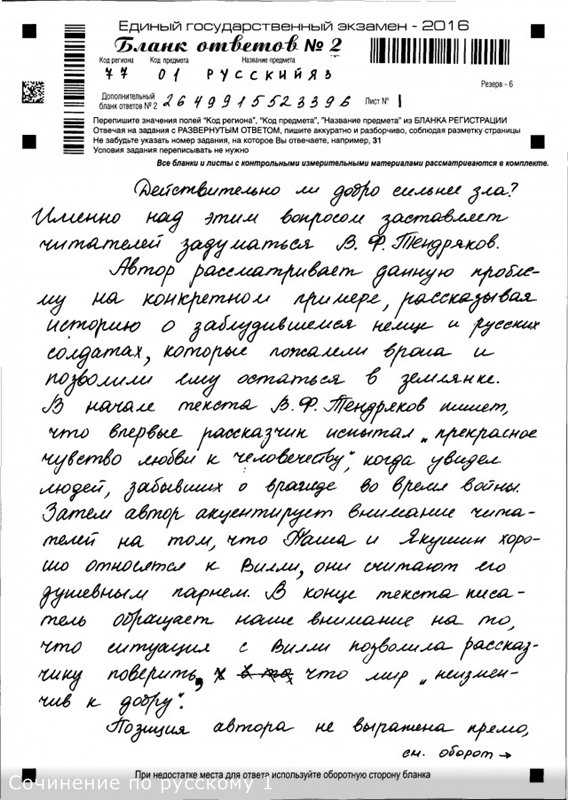 Единый государственный экзамен - 2016
Бланк ответов № 2
Код региона Код предмета Название предмета
77 01 РУССКИЙ ЯЗ
Резерв - 6
Дополнительный бланк ответов № 2 2649915523396 Лист № 1
Перепишите значения полей "Код региона", "Код предмета", "Название предмета" из БЛАНКА РЕГИСТРАЦИИ
Отвечая на задания с РАЗВЕРНУТЫМ ОТВЕТОМ, пишите аккуратно и разборчиво, соблюдая разметку страницы
Не забудьте указать номер задания, на которое Вы отвечаете, например, 31
Условия задания переписывать не нужно
Все бланки и листы с контрольными измерительными материалами рассматриваются в комплекте.
Действительно ли добро сильнее зла?
Именно над этим вопросом заставляет
читателей задуматься В. Ф. Тендряков.
Автор рассматривает данную пробле-
му на конкретном примере, рассказывая
историю о заблудившемся немце и русских
солдатах, которые пожалели врага и
позволили ему остаться в землянке.
В начале текста В.Ф. Тендряков пишет,
что впервые рассказчик испытал „прекрасное
чувство любви к человечеству", когда увидел
людей, забывших о вражде во время войны.
Затем автор акцентирует внимание чита-
телей на том, что Паша и Якушин хоро-
шо относятся к Вилли, они считают его
душевным парнем. В конце текста писа-
тель обращает наше внимание на то,
что ситуация с Вилли позволила рассказ-
чику поверить, что мир „неизмен-
чив к добру".
Позиция автора не выражена прямо,
см. оборот →
При недостатке места для ответа используйте оборотную сторону бланка
Сочинение по русскому 1